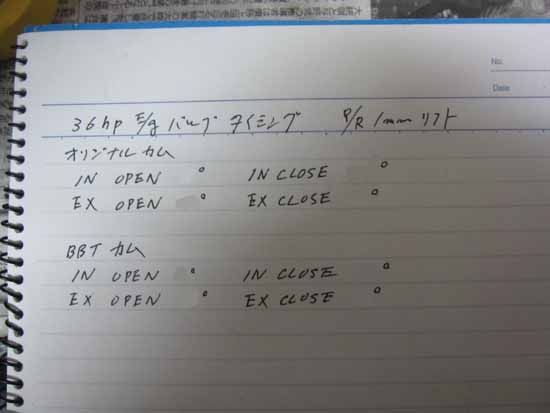 No.
Date
36hp E/g バルブ タイミング P/R 1mm リフト
オリジナル カム
IN OPEN ° IN CLOSE °
EX OPEN ° EX CLOSE °
BBT カム
IN OPEN ° IN CLOSE °
EX OPEN ° EX CLOSE °